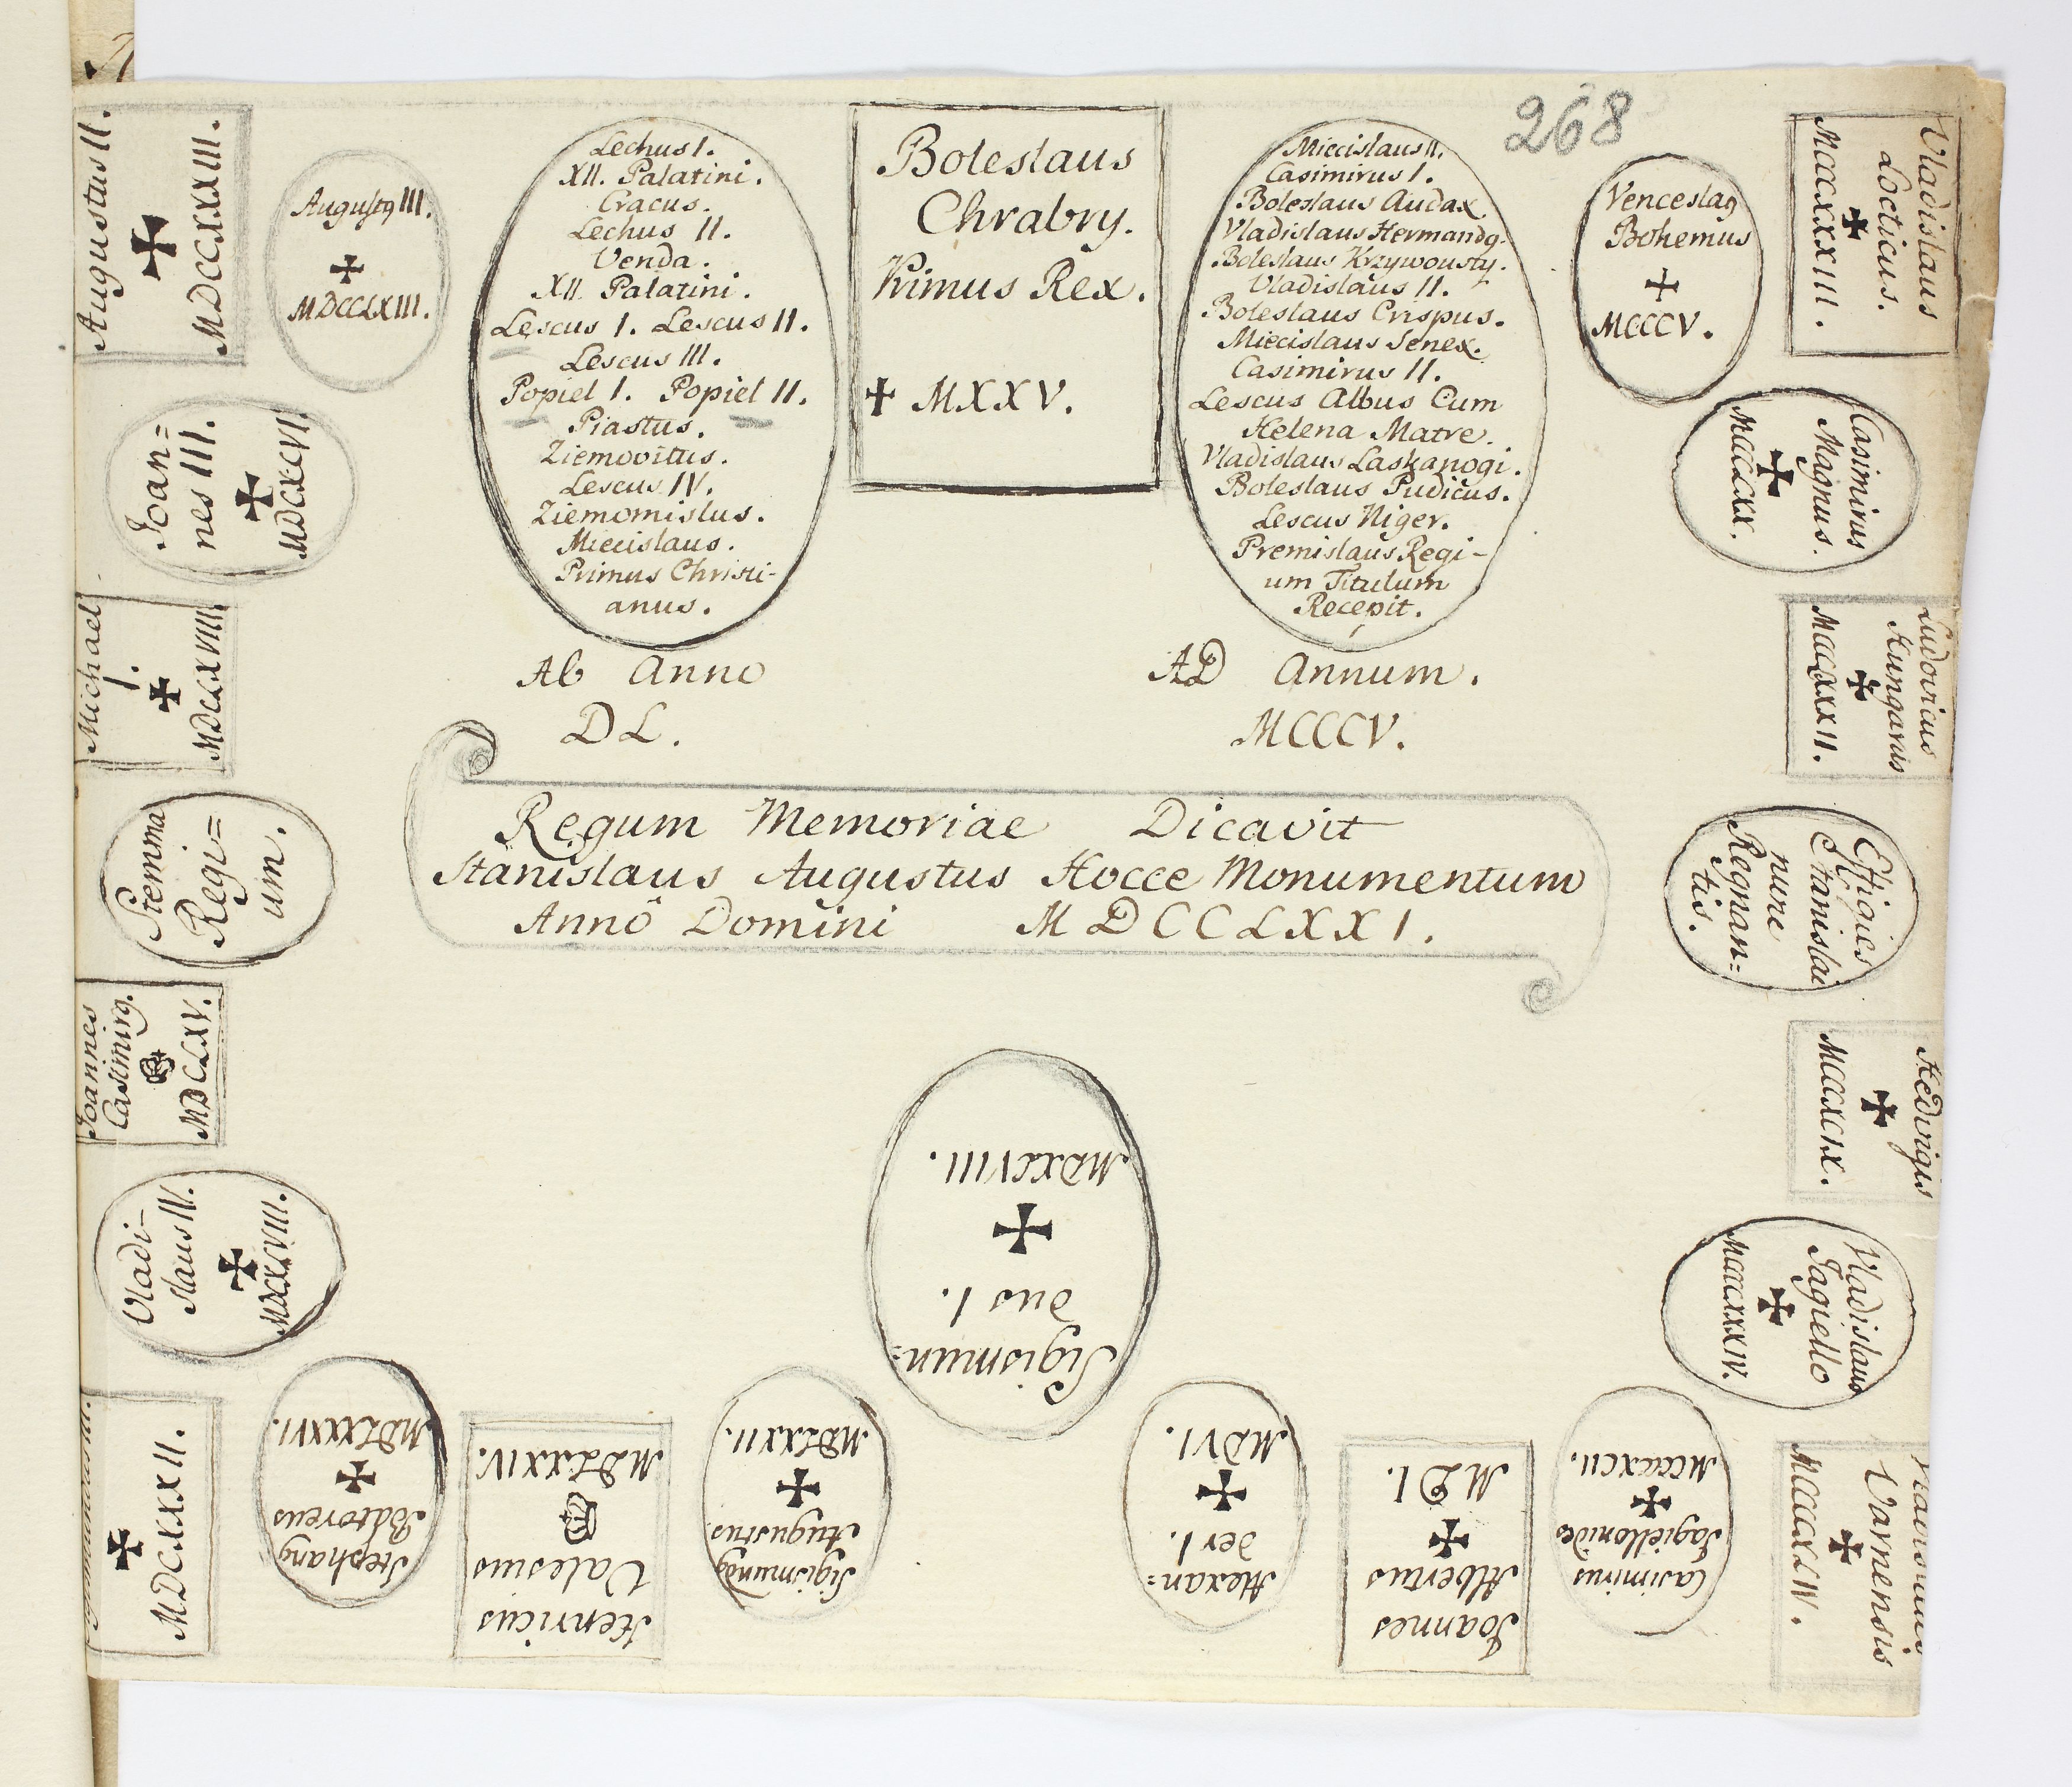 268
Augustus II.
MDCCXXXIII.
Augustꝯ III.
MDCCLXIII.
Lechus I.
XII. Palatini.
Cracus.
Lechus II.
Venda.
XII. Palatini.
Lescus I. Lescus II.
Lescus III.
Popiel I. Popiel II.
Piastus.
Ziemovitus.
Lescus IV.
Ziemomislus.
Miecislaus.
Primus Christi-
anus.
Ab Anno
DL.
Boleslaus
Chrabry.
Primus Rex.
✝ MXXV.
Miecislaus II.
Casimirus I.
Boleslaus Audax.
Vladislaus Hermandꝯ.
Boleslaus Krzywousty.
Vladislaus II.
Boleslaus Crispus.
Miecislaus Senex.
Casimirus II.
Lescus Albus Cum
Helena Matre.
Vladislaus Laskanogi.
Boleslaus Pudicus.
Lescus Niger.
Premislaus Regi-
um Titulum
Recepit.
AD Annum.
MCCCV.
Venceslaꝯ
Bohemus
MCCCV.
Vladislaus
Locticus.
MCCCXXXIII.
Casimirus
Magnus.
MCCCLXX.
Ludovicus
Hungarus
MCCCLXXXII.
Effigies
Stanislai
nunc
Regnan=
tis.
Hedvigis
MCCCXCIX.
Vladislaus
Jagiello
MCCCCXXXIV.
Vladislaus
Varnensis
MCCCCXLIV.
Casimirus
Jagiellonides
MCCCCXCII.
Joannes
Albertus
MDI.
Alexan=
der I.
MDVI.
Sigismun=
dus I.
MDXLVIII.
Sigismundꝯ
Augustus
MDLXXII.
Henricus
Valesius
MDLXXIV.
Stephanꝯ
Batoreus
MDLXXXVI.
MDCXXXII.
Vladi-
slaus IV.
MDCXLVIII.
Joannes
Casimirꝯ.
MDCLXV.
Stemma
Regi=
um.
Michael
I.
MDCLXVIIII.
Joan=
nes III.
MDCXCVI.
Regum Memoriae Dicavit
Stanislaus Augustus Hocce Monumentum
Anno Domini MDCCLXXI.